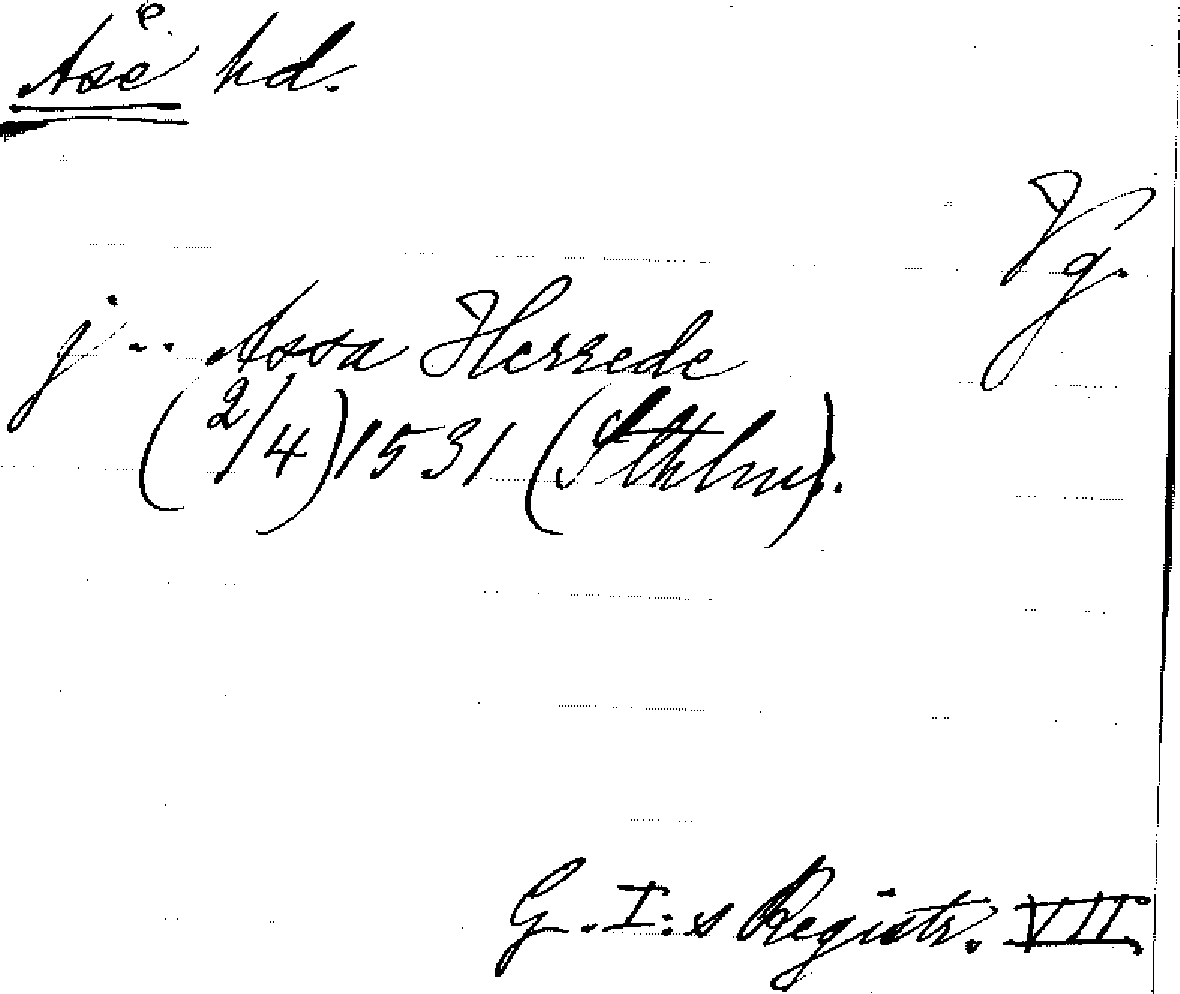 Åse hd.
Vg.
j .. Assa Herrede
(2/4) 1531 (Sthlm).
G. I:s Registr. VII